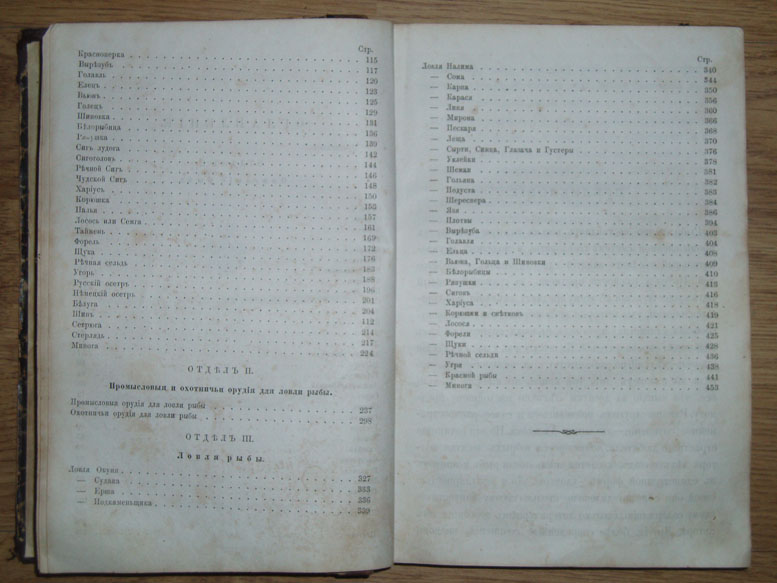 Стр.
Красноперка 115
Вырѣзубъ 117
Голавль 120
Елецъ 123
Вьюнъ 125
Голецъ 129
Шиповка 131
Бѣлорыбица 136
Ряпушка 139
Сигъ лудога 142
Сиголовъ 144
Рѣчной Сигъ 146
Чудской Сигъ 148
Харіусъ 150
Корюшка 153
Палья 157
Лосось или Семга 161
Таймень 169
Форель 172
Щука 176
Рѣчная сельдь 183
Угорь 188
Русскій осетръ 198
Нѣмецкій осетръ 201
Бѣлуга 204
Шипъ 112
Севрюга 214
Стерлядь 217
Минога 224
ОТДѢЛЪ II.
Промысловыя и охотничьи орудія для ловли рыбы.
Промысловыя орудія для ловли рыбы 237
Охотничьи орудія для ловли рыбы 298
ОТДѢЛЪ III.
Ловля рыбы.
Ловля Окуня 327
— Судака 333
— Ерша 336
— Подкаменьщика 339
Стр.
Ловля Налима 340
— Сома 344
— Карпа 350
— Карася 356
— Линя 360
— Мирона 366
— Пескаря 368
— Леща 370
— Сырти, Синца, Глазача и Густеры 376
— Уклейки 378
— Шемаи 381
— Гольяна 382
— Подуста 383
— Шереспера 384
— Язя 386
— Плотвы 394
— Вырѣзуба 403
— Голавля 404
— Ельца 408
— Вьюна, Гольца и Шиповки 409
— Бѣлорыбицы 410
— Ряпушки 413
— Сиговъ 416
— Харіуса 418
— Корюшки и снѣтковъ 419
— Лосося 421
— Форели 425
— Щуки 428
— Рѣчной сельди 436
— Угря 438
— Красной рыбы 441
— Миноги 453